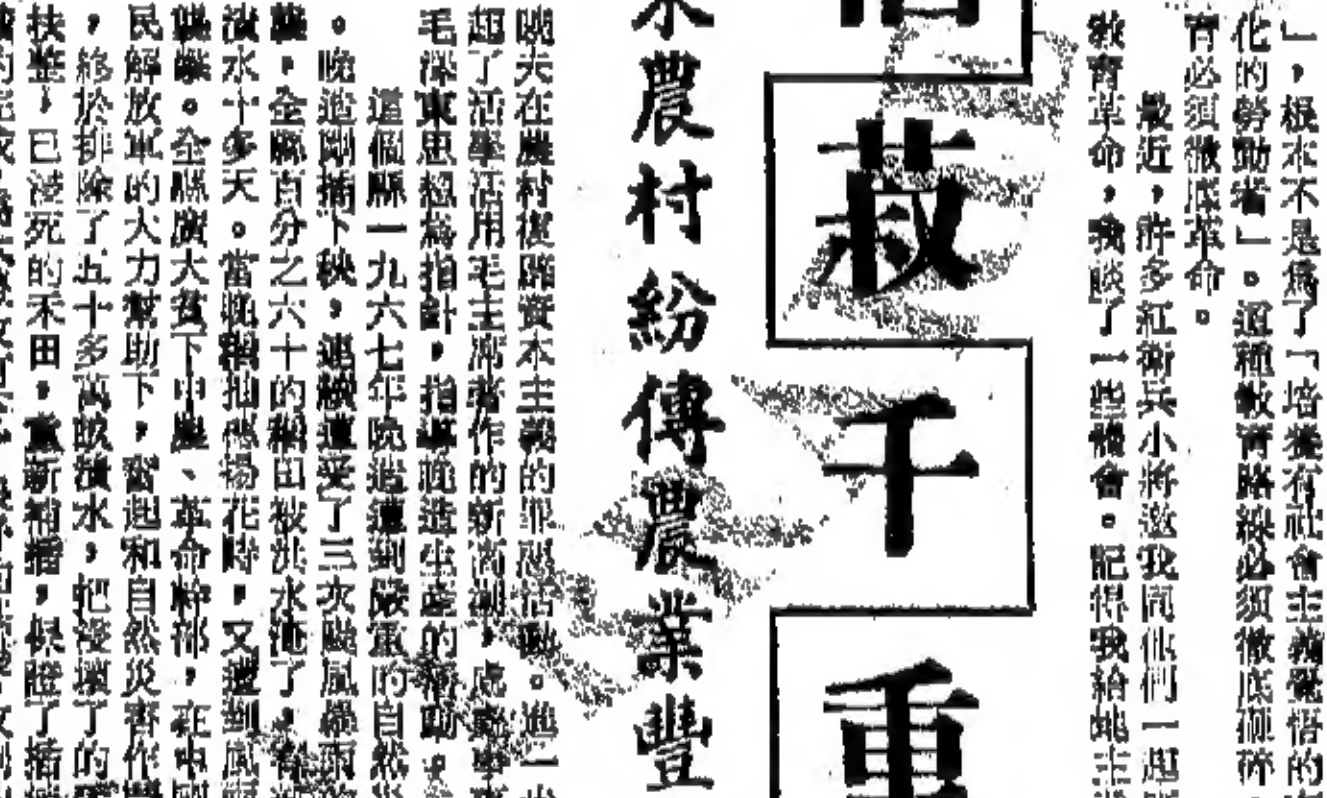 」,根本不是爲了「培養有社會主義覺悟的
化的勞動者」。這種教育路線必須徹底砸碎
育必須徹底革命。
最近,許多紅衛兵小將邀我同他們一起
教育革命,我談了一些體會。記得我給地主
菽千重
農村紛傳農業豐
在農村復辟資本主義的罪惡活動。進一
起了活學活用毛主席著作的新高潮,處處事
毛澤東思想爲指針,指導晚造生產的活動。
這個縣一九六七年晚造遭到嚴重的自然災
。晚造剛插下秧,連續遭受了三次颱風暴雨
襲,全縣百分之六十的稻田被洪水淹了,有
漬水十多天。當晚稻抽穗揚花時,又遭到風
襲擊。全縣廣大貧下中農、革命幹部,在中國
民解放軍的大力幫助下,奮起和自然災害作
,終於排除了五十多萬畝漬水,把浸壞了的
扶整,已浸死的禾田,重新補插,保證了插